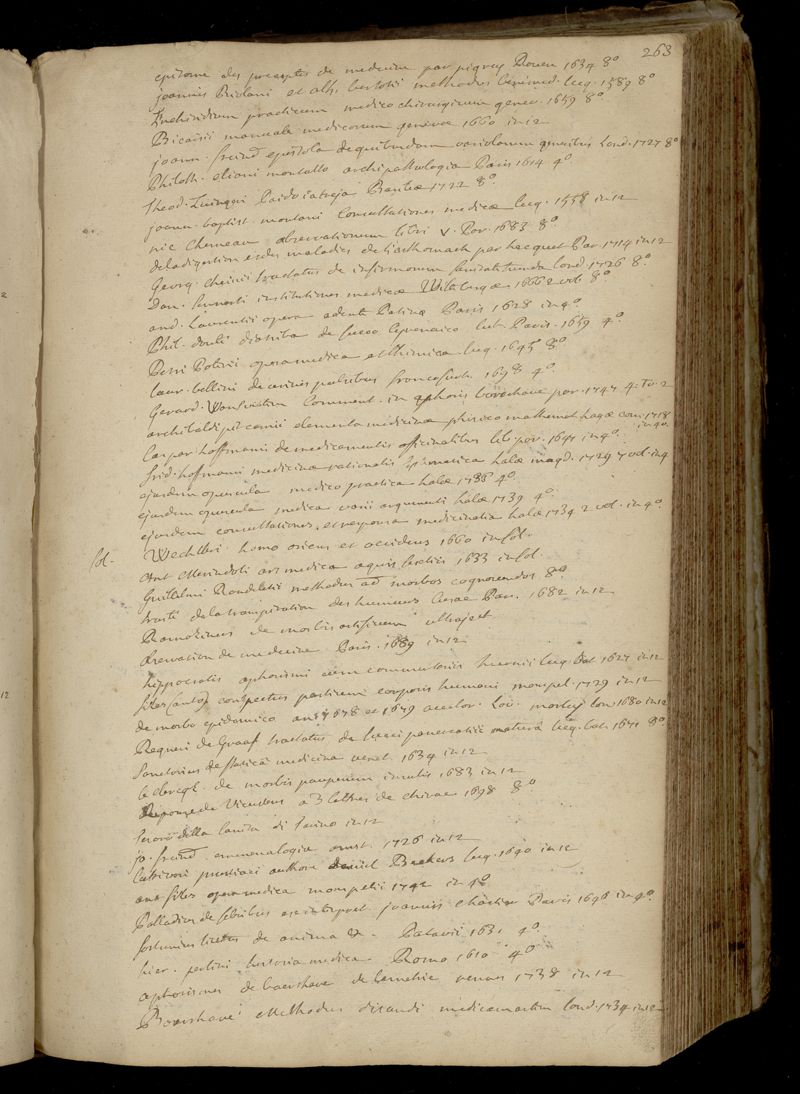 263
epitome des preceptes de medecine par pigray Rouen 1634 8°
joannis Riolani et alb. bertotii methodus lug. 1589 8°
Enchiridium practicum medico chirurgicum genev. 1659 8°
Bicaisii manuale medicorum genevæ 1660 in 12
joann. freind epistola de quibusdam variolarum generibus Lond. 1727 8°
Philoth. eliani montalto archipathologia Paris 1614 4°
Theod. Zuingeri Paidoiatreja Basileæ 1722 8°
joann. baptist. montani Consultationes medicæ lug. 1558 in 12
nic chesneau observationum libri V. Par. 1683 8°
de la digestion et des maladies de l'esthomach par hecquet Par. 1714 in 12
Georg. cheinii tractatus de infirmorum sanitate tuenda lond. 1726 8°
Dan. Sennerti institutiones medicæ Wittebergæ 1666 2 vol. 8°
and. Laurentii opera edente Patino Paris 1628 in 4°
Phil. diatriba de succo Cyrenaico Lut. Paris. 1659 4°
Petri Poterii opera medica et chimica lug. 1645 8°
laur. bellini de urinis pulsibus francofurti 1698 4°
Gerard. Vanswieten Comment. in aphoris. boerhave par. 1747 4. to. 2
archibaldi pitcarnii elementa medicinæ phisico mathemat. hagæ com. 1718
Caspar. hoffmanni de medicamentis officinalibus lib. par. 1647 in 4° in 4°
frid. hoffmanni medicina rationalis sistematica halæ magd. 1729 7 vol. in 4
ejusdem opuscula medico practica halæ 1736 4°
ejusdem opuscula medica varii argumenti halæ 1739 4°
ejusdem consultationes et responsa medicinalia halæ 1734 2 vol. in 4°
fol. Wechtleri homo oriens et occidens 1660 in fol.
Ant Merindoli ars medica aquis sextiis 1633 in fol.
Guillelmi Rondeletii methodus ad morbos cognoscendos 8°
traité de la transpiration des humeurs Par. 1682 in 12
Ramazinus de morbis artificum ultraject.
Observation de medecine Paris 1689 in 12
hippocratis aphorismi cum commentariis heurnii lug. bat 1627 in 12
fizes (anto) conspectus partium corporis humani monspel. 1729 in 12
de morbo epidemico an. 1678 et 1679 lond. 1680 in 12
Regneri de Graaf tractatus de succi pancreatici natura lug. bat. 1671 8°
Sanctorius de statica medicina venet. 1634 in 12
le clercq. de morbis pauperum 1683 in 12
Reponse de Vieussens a 3 lettres de chirac 1698 8°
della sanita di in 12
jo. freind emmenologia amst. 1726 in 12
authore Daniel lug. 1690 in 12
ant fizes opera medica monspelii 1742 in 4°
Palladius de febribus ex interpret. joannis chartier Paris 1646 in 4°
fortunius licetus de anima &. Patavii 1631 4°
hier. perlini historia medica Roma 1610 4°
aphorismes de boerhave de rennes 1738 in 12
Boerhave methodus discendi medicinam lond. 1734 in 12